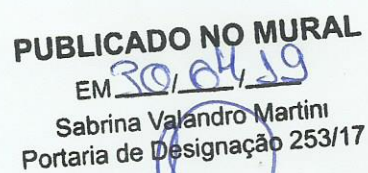 PUBLICADO NO MURAL
EM 30/04/19
Sabrina Valandro Martini
Portaria de Designação 253/17